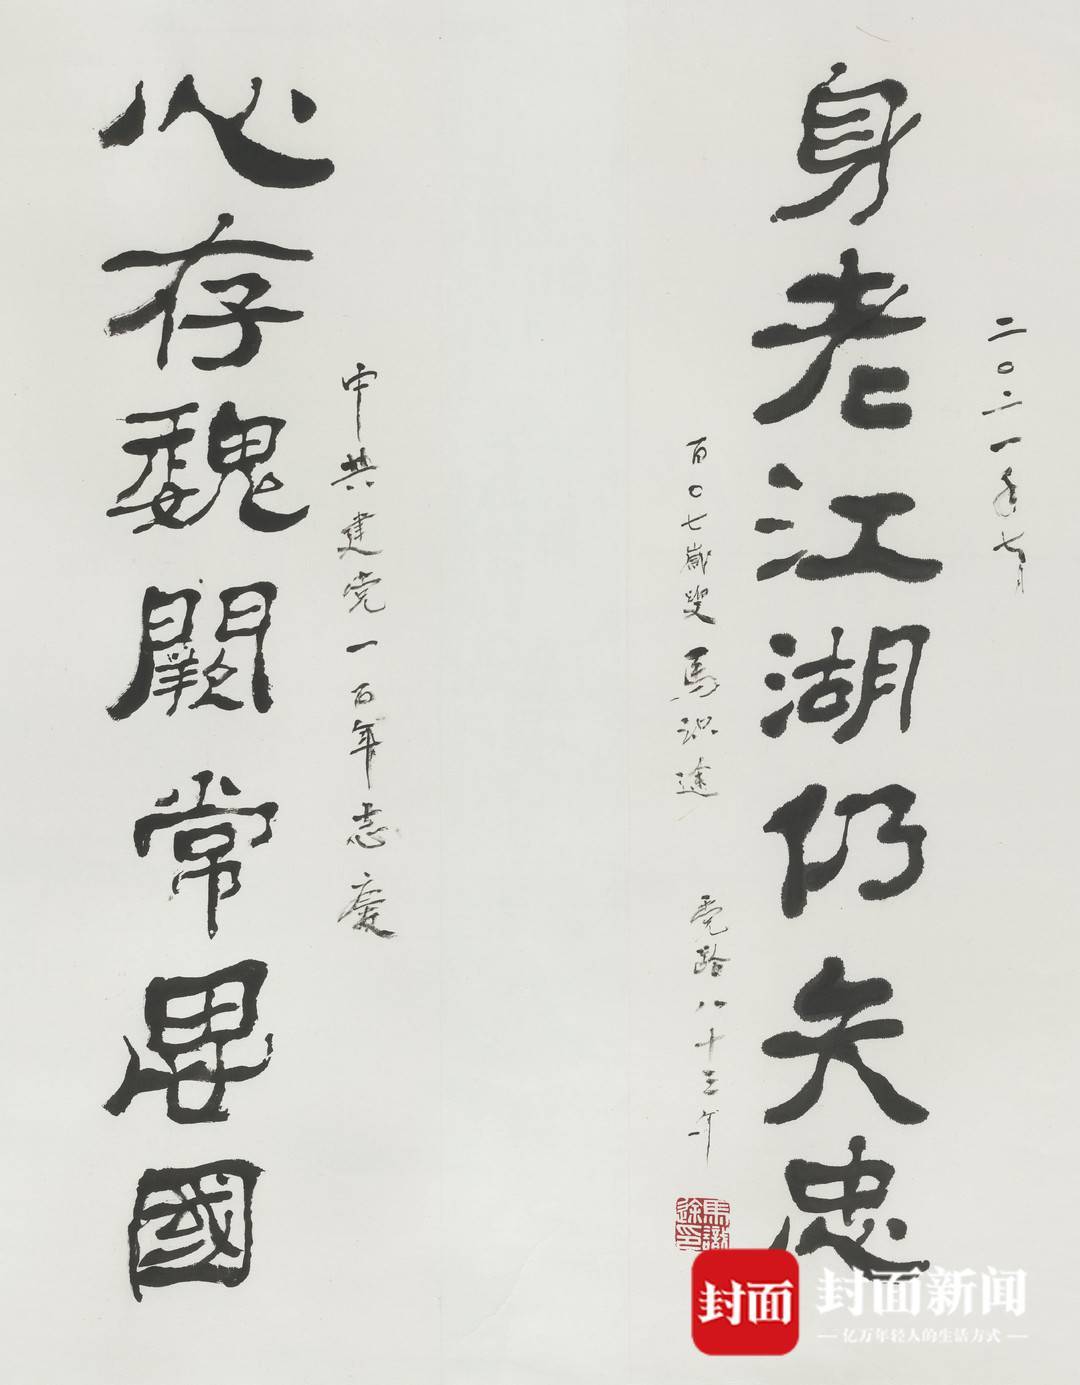 二〇二一年七月
身老江湖仍矢忠
百〇七歲叟馬识途 党龄八十三年
馬識途印
中共建党一百年志慶
心存魏闕常思國
封面
封面新闻
亿万年轻人的生活方式